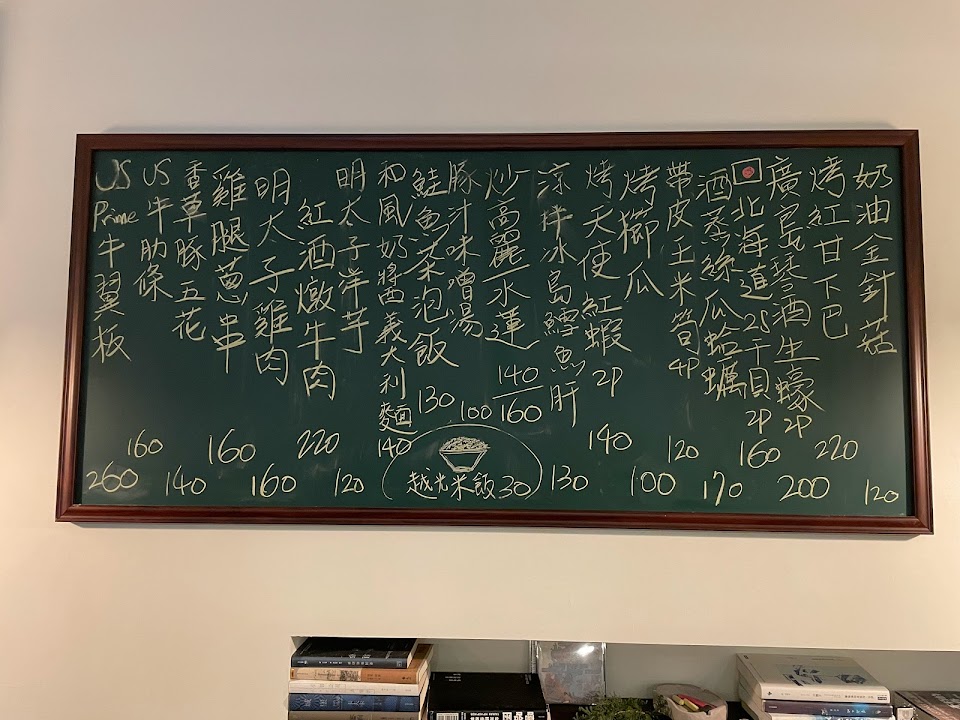 奶油金針菇 120
烤紅甘下巴 220
廣島琴酒生蠔 2P 200
北海道2S干貝 2P 160
酒蒸絲瓜蛤蠣 170
帶皮玉米筍 4P 120
烤櫛瓜 100
烤天使紅蝦 2P 140
涼拌冰島鱈魚肝 130
炒高麗/水蓮 140/160
豚汁味噌湯 100
鮭魚茶泡飯 130
和風奶醬義大利麵 140
明太子洋芋 120
紅酒燉牛肉 220
明太子雞肉 160
雞腿蔥串 160
香草豚五花 140
US牛肋條 160
US Prime牛翼板 260
越光米飯30